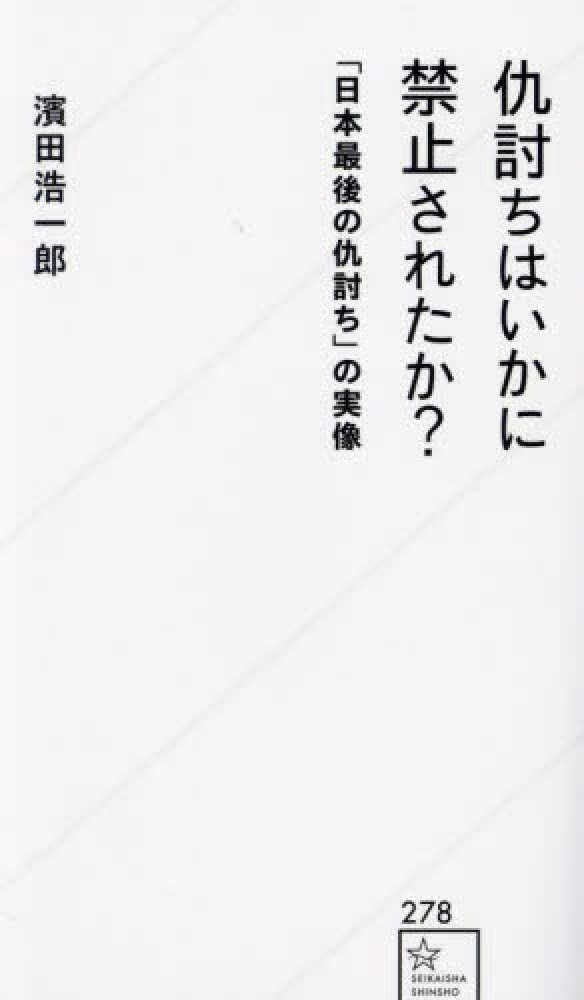 仇討ちはいかに
禁止されたか?
「日本最後の仇討ち」の実像
濱田浩一郎
278
SEIKAISHA
SHINSHO